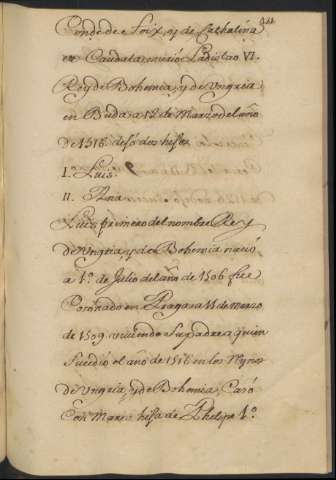 Conde de Foix, y de Cathalina
de Candala, murió Ladislao VI.
Rey de Bohemia, y de Ungria
en Buda a 12 de Marzo del año
de 1516. dejó dos hijos
I. Luis.
II. Ana
Luis primero del nombre Rey
de Ungria, y de Bohemia nació
a 1º. de Julio del año de 1506 fue
Coronado en Praga a 11 de marzo
de 1509. viviendo su padre a quien
sucedio el año de 1516 en los Rynos
de Ungria, y de Bohemia, Casó
Con Maria hija de Phelipe 1º.